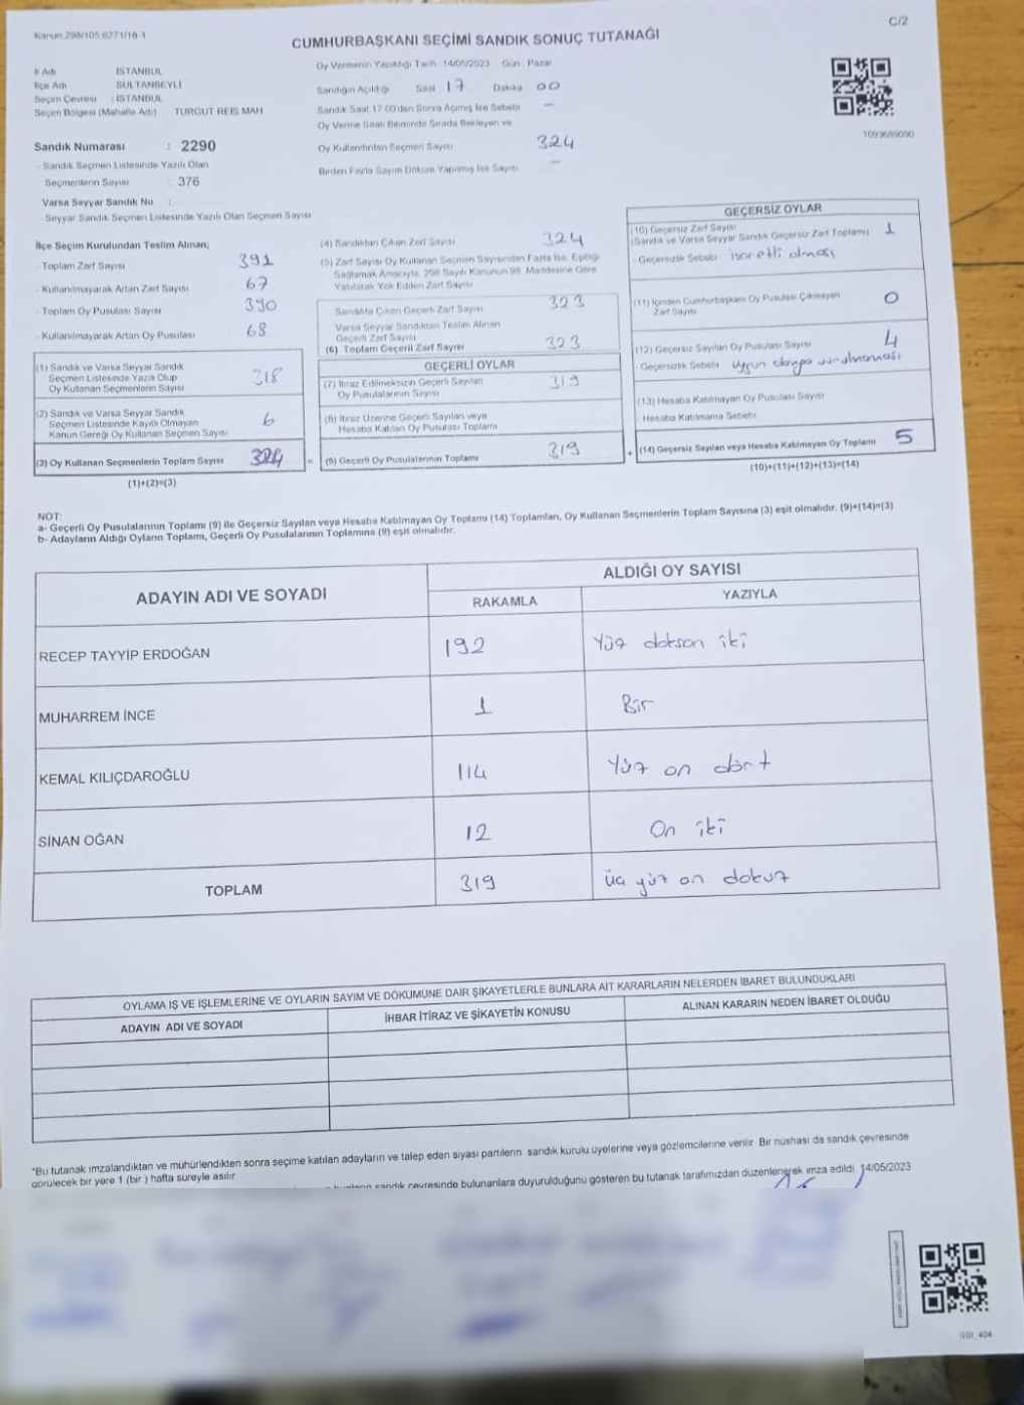 Kanun:298/105 6271/18-1
C/2
CUMHURBAŞKANI SEÇİMİ SANDIK SONUÇ TUTANAĞI
İl Adı : İSTANBUL
İlçe Adı : SULTANBEYLİ
Seçim Çevresi : İSTANBUL
Seçim Bölgesi (Mahalle Adı) : TURGUT REİS MAH
Sandık Numarası : 2290
Sandık Seçmen Listesinde Yazılı Olan
Seçmenlerin Sayısı : 376
Varsa Seyyar Sandık No :
Seyyar Sandık Seçmen Listesinde Yazılı Olan Seçmen Sayısı
Oy Vermenin Yapıldığı Tarih : 14/05/2023 Gün : Pazar
Sandığın Açıldığı Saat 17 Dakika 00
Sandık Saat 17:00'den Sonra Açılmış İse Sebebi —
Oy Verme Saati Bitiminde Sırada Bekleyen ve
Oy Kullandırılan Seçmen Sayısı 324
Birden Fazla Sayım Döküm Yapılmış İse Sayısı —
İlçe Seçim Kurulundan Teslim Alınan;
Toplam Zarf Sayısı 391
Kullanılmayarak Artan Zarf Sayısı 67
Toplam Oy Pusulası Sayısı 390
Kullanılmayarak Artan Oy Pusulası 68
(1) Sandık ve Varsa Seyyar Sandık
Seçmen Listesinde Yazılı Olup
Oy Kullanan Seçmenlerin Sayısı 318
(2) Sandık ve Varsa Seyyar Sandık
Seçmen Listesinde Kayıtlı Olmayan
Kanun Gereği Oy Kullanan Seçmen Sayısı 6
(3) Oy Kullanan Seçmenlerin Toplam Sayısı 324
(1)+(2)=(3)
(4) Sandıktan Çıkan Zarf Sayısı 324
(5) Zarf Sayısı Oy Kullanan Seçmen Sayısından Fazla İse, Eşitliği
Sağlamak Amacıyla, 298 Sayılı Kanunun 98. Maddesine Göre
Yakılarak Yok Edilen Zarf Sayısı
Sandıkta Çıkan Geçerli Zarf Sayısı 323
Varsa Seyyar Sandıktan Teslim Alınan
Geçerli Zarf Sayısı
(6) Toplam Geçerli Zarf Sayısı 323
GEÇERLİ OYLAR
(7) İtiraz Edilmeksizin Geçerli Sayılan
Oy Pusulalarının Sayısı 319
(8) İtiraz Üzerine Geçerli Sayılan veya
Hesaba Katılan Oy Pusulası Toplamı
(9) Geçerli Oy Pusulalarının Toplamı 319
GEÇERSİZ OYLAR
(10) Geçersiz Zarf Sayısı
(Sandık ve Varsa Seyyar Sandık Geçersiz Zarf Toplamı) 1
Geçersizlik Sebebi işaretli olması
(11) İçinden Cumhurbaşkanı Oy Pusulası Çıkmayan
Zarf Sayısı 0
(12) Geçersiz Sayılan Oy Pusulası Sayısı 4
Geçersizlik Sebebi
(13) Hesaba Katılmayan Oy Pusulası Sayısı
Hesaba Katılmama Sebebi
(14) Geçersiz Sayılan veya Hesaba Katılmayan Oy Toplamı 5
(10)+(11)+(12)+(13)=(14)
NOT:
a- Geçerli Oy Pusulalarının Toplamı (9) ile Geçersiz Sayılan veya Hesaba Katılmayan Oy Toplamı (14) Toplamları, Oy Kullanan Seçmenlerin Toplam Sayısına (3) eşit olmalıdır. (9)+(14)=(3)
b- Adayların Aldığı Oyların Toplamı, Geçerli Oy Pusulalarının Toplamına (9) eşit olmalıdır.
ADAYIN ADI VE SOYADI
ALDIĞI OY SAYISI
RAKAMLA YAZIYLA
RECEP TAYYİP ERDOĞAN 192 Yüz doksan iki
MUHARREM İNCE 1 Bir
KEMAL KILIÇDAROĞLU 114 Yüz on dört
SİNAN OĞAN 12 On iki
TOPLAM 319 üç yüz on dokuz
OYLAMA İŞ VE İŞLEMLERİNE VE OYLARIN SAYIM VE DÖKÜMÜNE DAİR ŞİKAYETLERLE BUNLARA AİT KARARLARIN NELERDEN İBARET BULUNDUKLARI
ADAYIN ADI VE SOYADI İHBAR İTİRAZ VE ŞİKAYETİN KONUSU ALINAN KARARIN NEDEN İBARET OLDUĞU
*Bu tutanak imzalandıktan ve mühürlendikten sonra seçime katılan adayların ve talep eden siyasi partilerin sandık kurulu üyelerine veya gözlemcilerine verilir. Bir nüshası da sandık çevresinde
görülecek bir yere 1 (bir) hafta süreyle asılır.
sandık çevresinde bulunanlara duyurulduğunu gösteren bu tutanak tarafımızdan düzenlenerek imza edildi. 14/05/2023